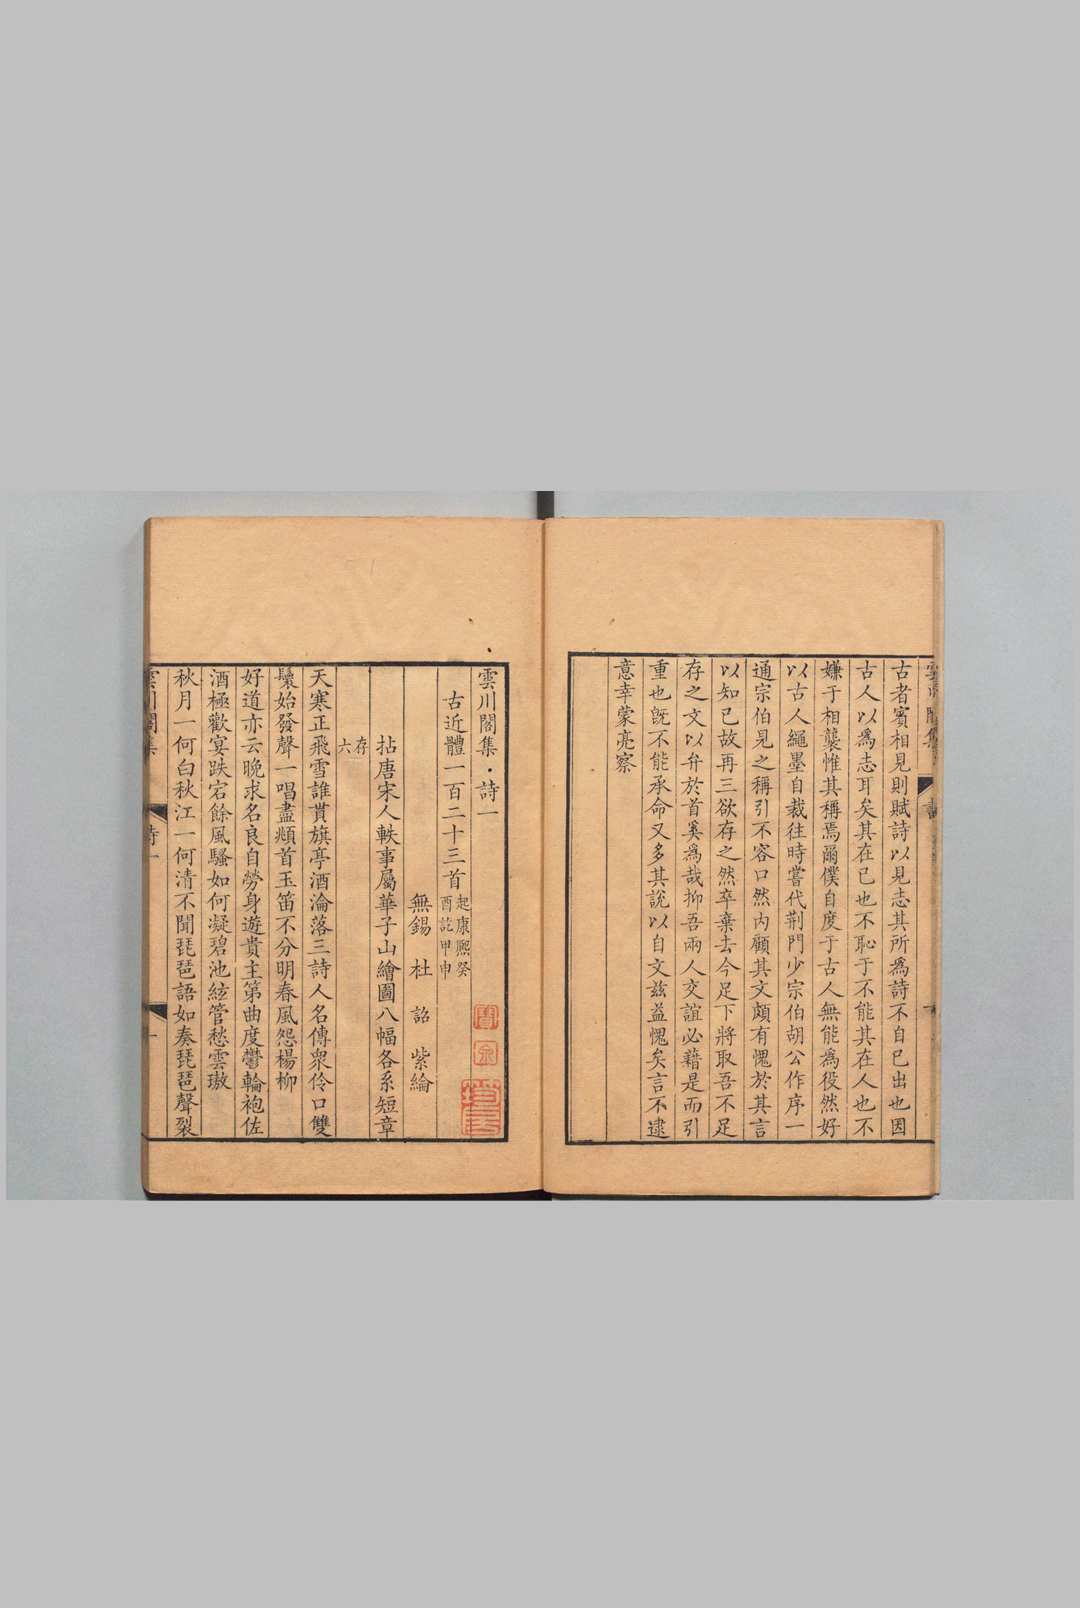 古者賓相見則賦詩以見志其所為詩不自已出也因
古人以為志耳矣其在已也不恥于不能其在人也不
嫌于相襲惟其稱焉爾僕自度于古人無能為役然好
以古人繩墨自裁往時嘗代荆門少宗伯胡公作序一
通宗伯見之稱引不容口然內顧其文頗有愧於其言
以知已故再三欲存之然卒棄去今足下將取吾不足
存之文以弁於首奚為哉抑吾兩人交誼必藉是而引
重也旣不能承命又多其說以自文兹益愧矣言不逮
意幸蒙亮察
雲川閣集・詩一
古近體一百二十三首起康熙癸酉訖甲申
無錫 杜 詔 紫綸
拈唐宋人軼事屬華子山繪圖八幅各系短章
存六
天寒正飛雪誰貰旗亭酒淪落三詩人名傳衆伶口雙
鬟始發聲一唱盡頫首玉笛不分明春風怨楊柳
好道亦云晚求名良自勞身遊貴主第曲度鬱輪袍佐
酒極歡宴跌宕餘風騷如何凝碧池絃管愁雲璈
秋月一何白秋江一何清不聞琵琶語如奏琵琶聲裂
雲川閣集
詩一
一